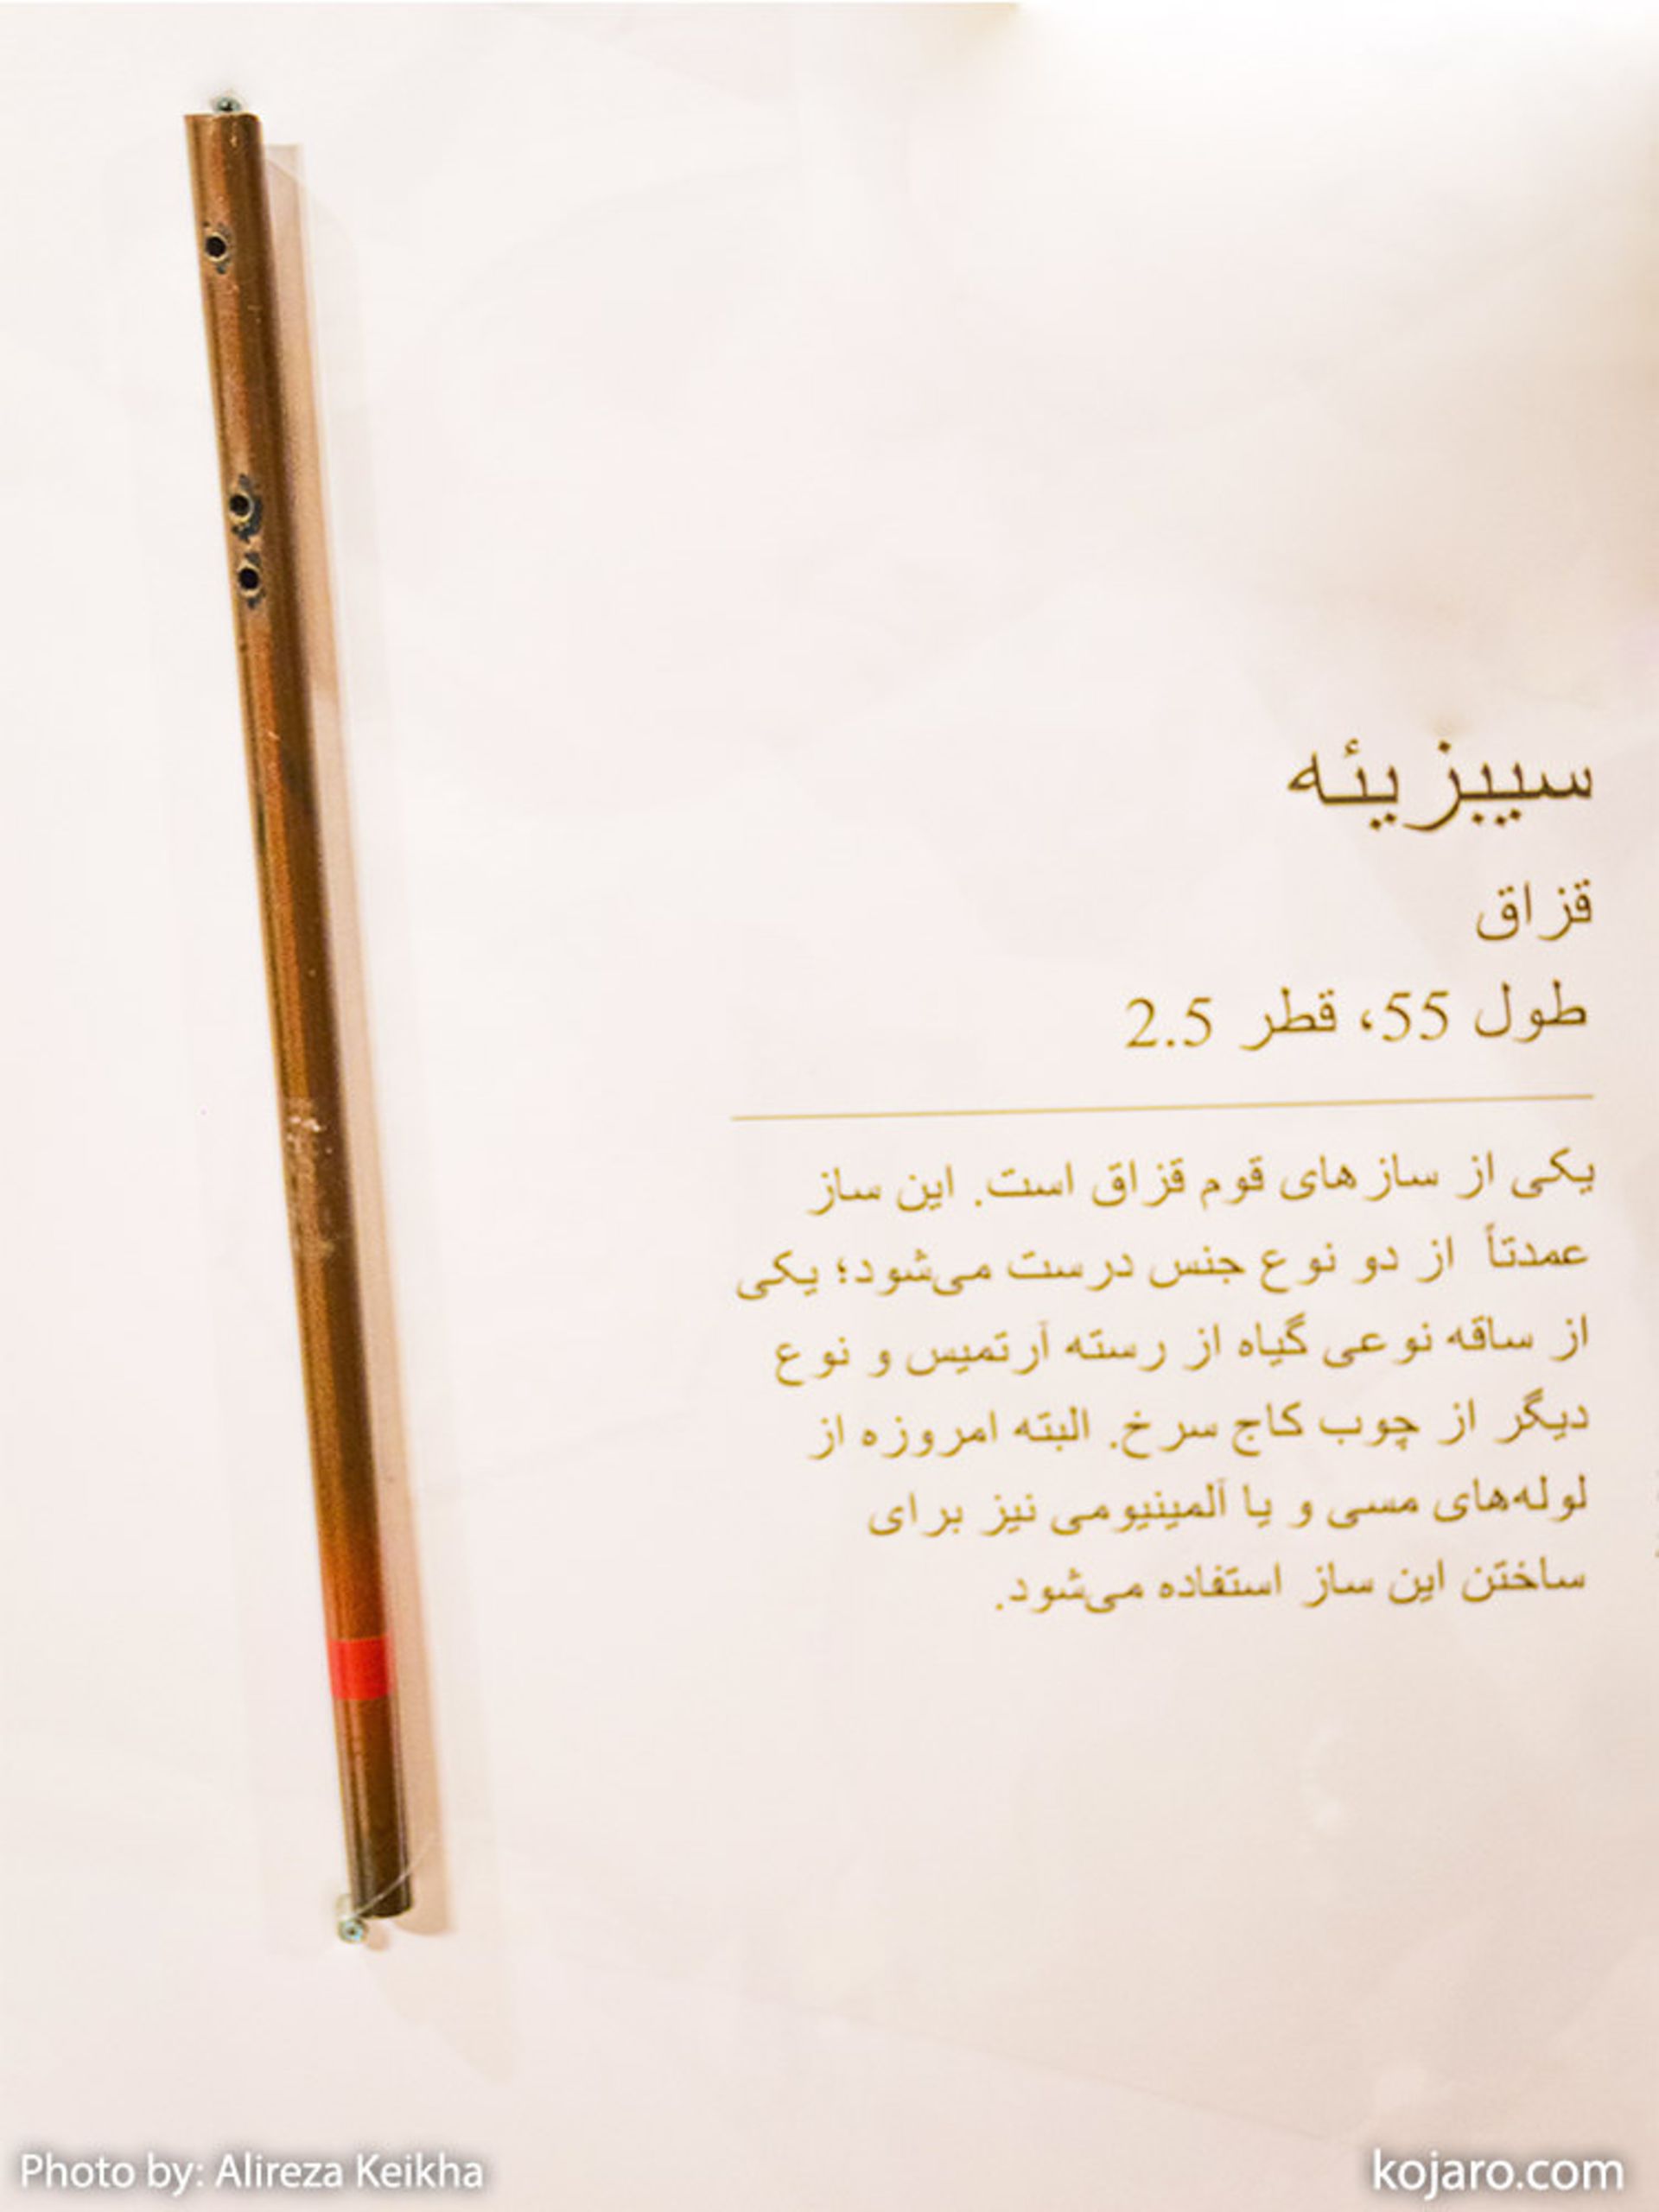 سیبزیئه
قزاق
طول 55، قطر 2.5
یکی از سازهای قوم قزاق است. این ساز
عمدتاً از دو نوع جنس درست می‌شود؛ یکی
از ساقه نوعی گیاه از رسته آرتمیس و نوع
دیگر از چوب کاج سرخ. البته امروزه از
لوله‌های مسی و یا آلمینیومی نیز برای
ساختن این ساز استفاده می‌شود.
Photo by: Alireza Keikha
kojaro.com